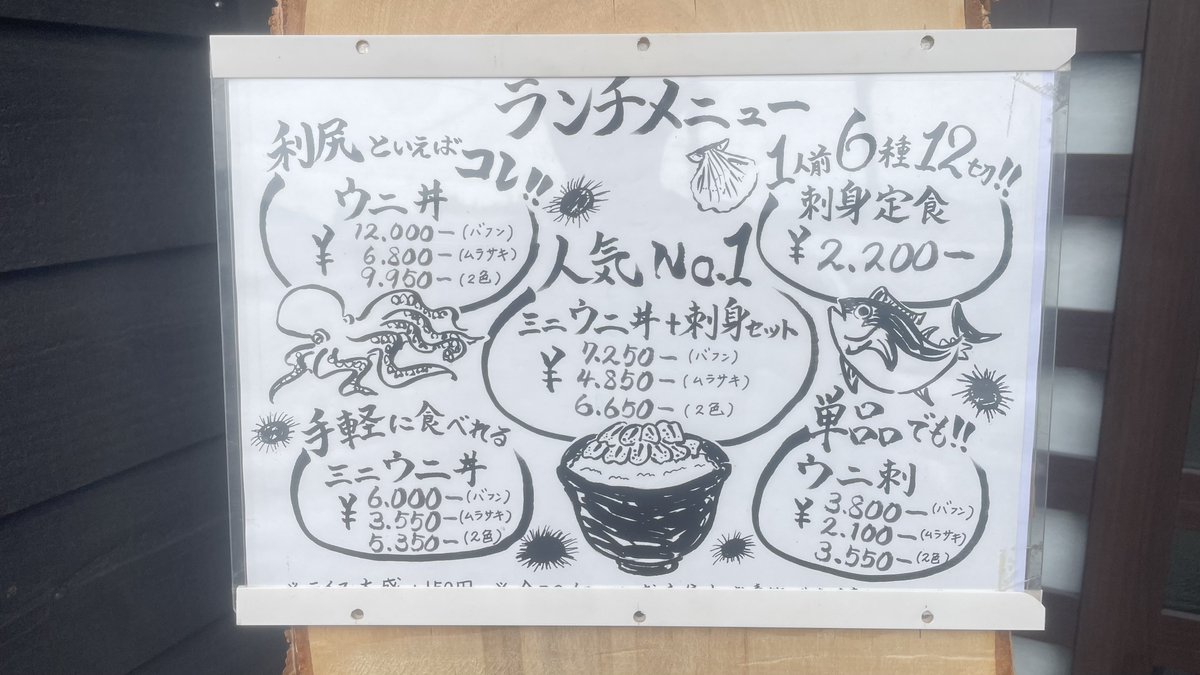 ランチメニュー
利尻といえばコレ!!
ウニ丼
¥ 12.000ー(バフン)
6.800ー(ムラサキ)
9.950ー(2色)
人気No.1
ミニウニ丼+刺身セット
¥ 7.250ー(バフン)
4.850ー(ムラサキ)
6.650ー(2色)
1人前6種12切!!
刺身定食
¥2.200ー
手軽に食べれる
ミニウニ丼
¥ 6.000ー(バフン)
3.550ー(ムラサキ)
5.350ー(2色)
単品でも!!
ウニ刺
¥ 3.800ー(バフン)
2.100ー(ムラサキ)
3.550ー(2色)